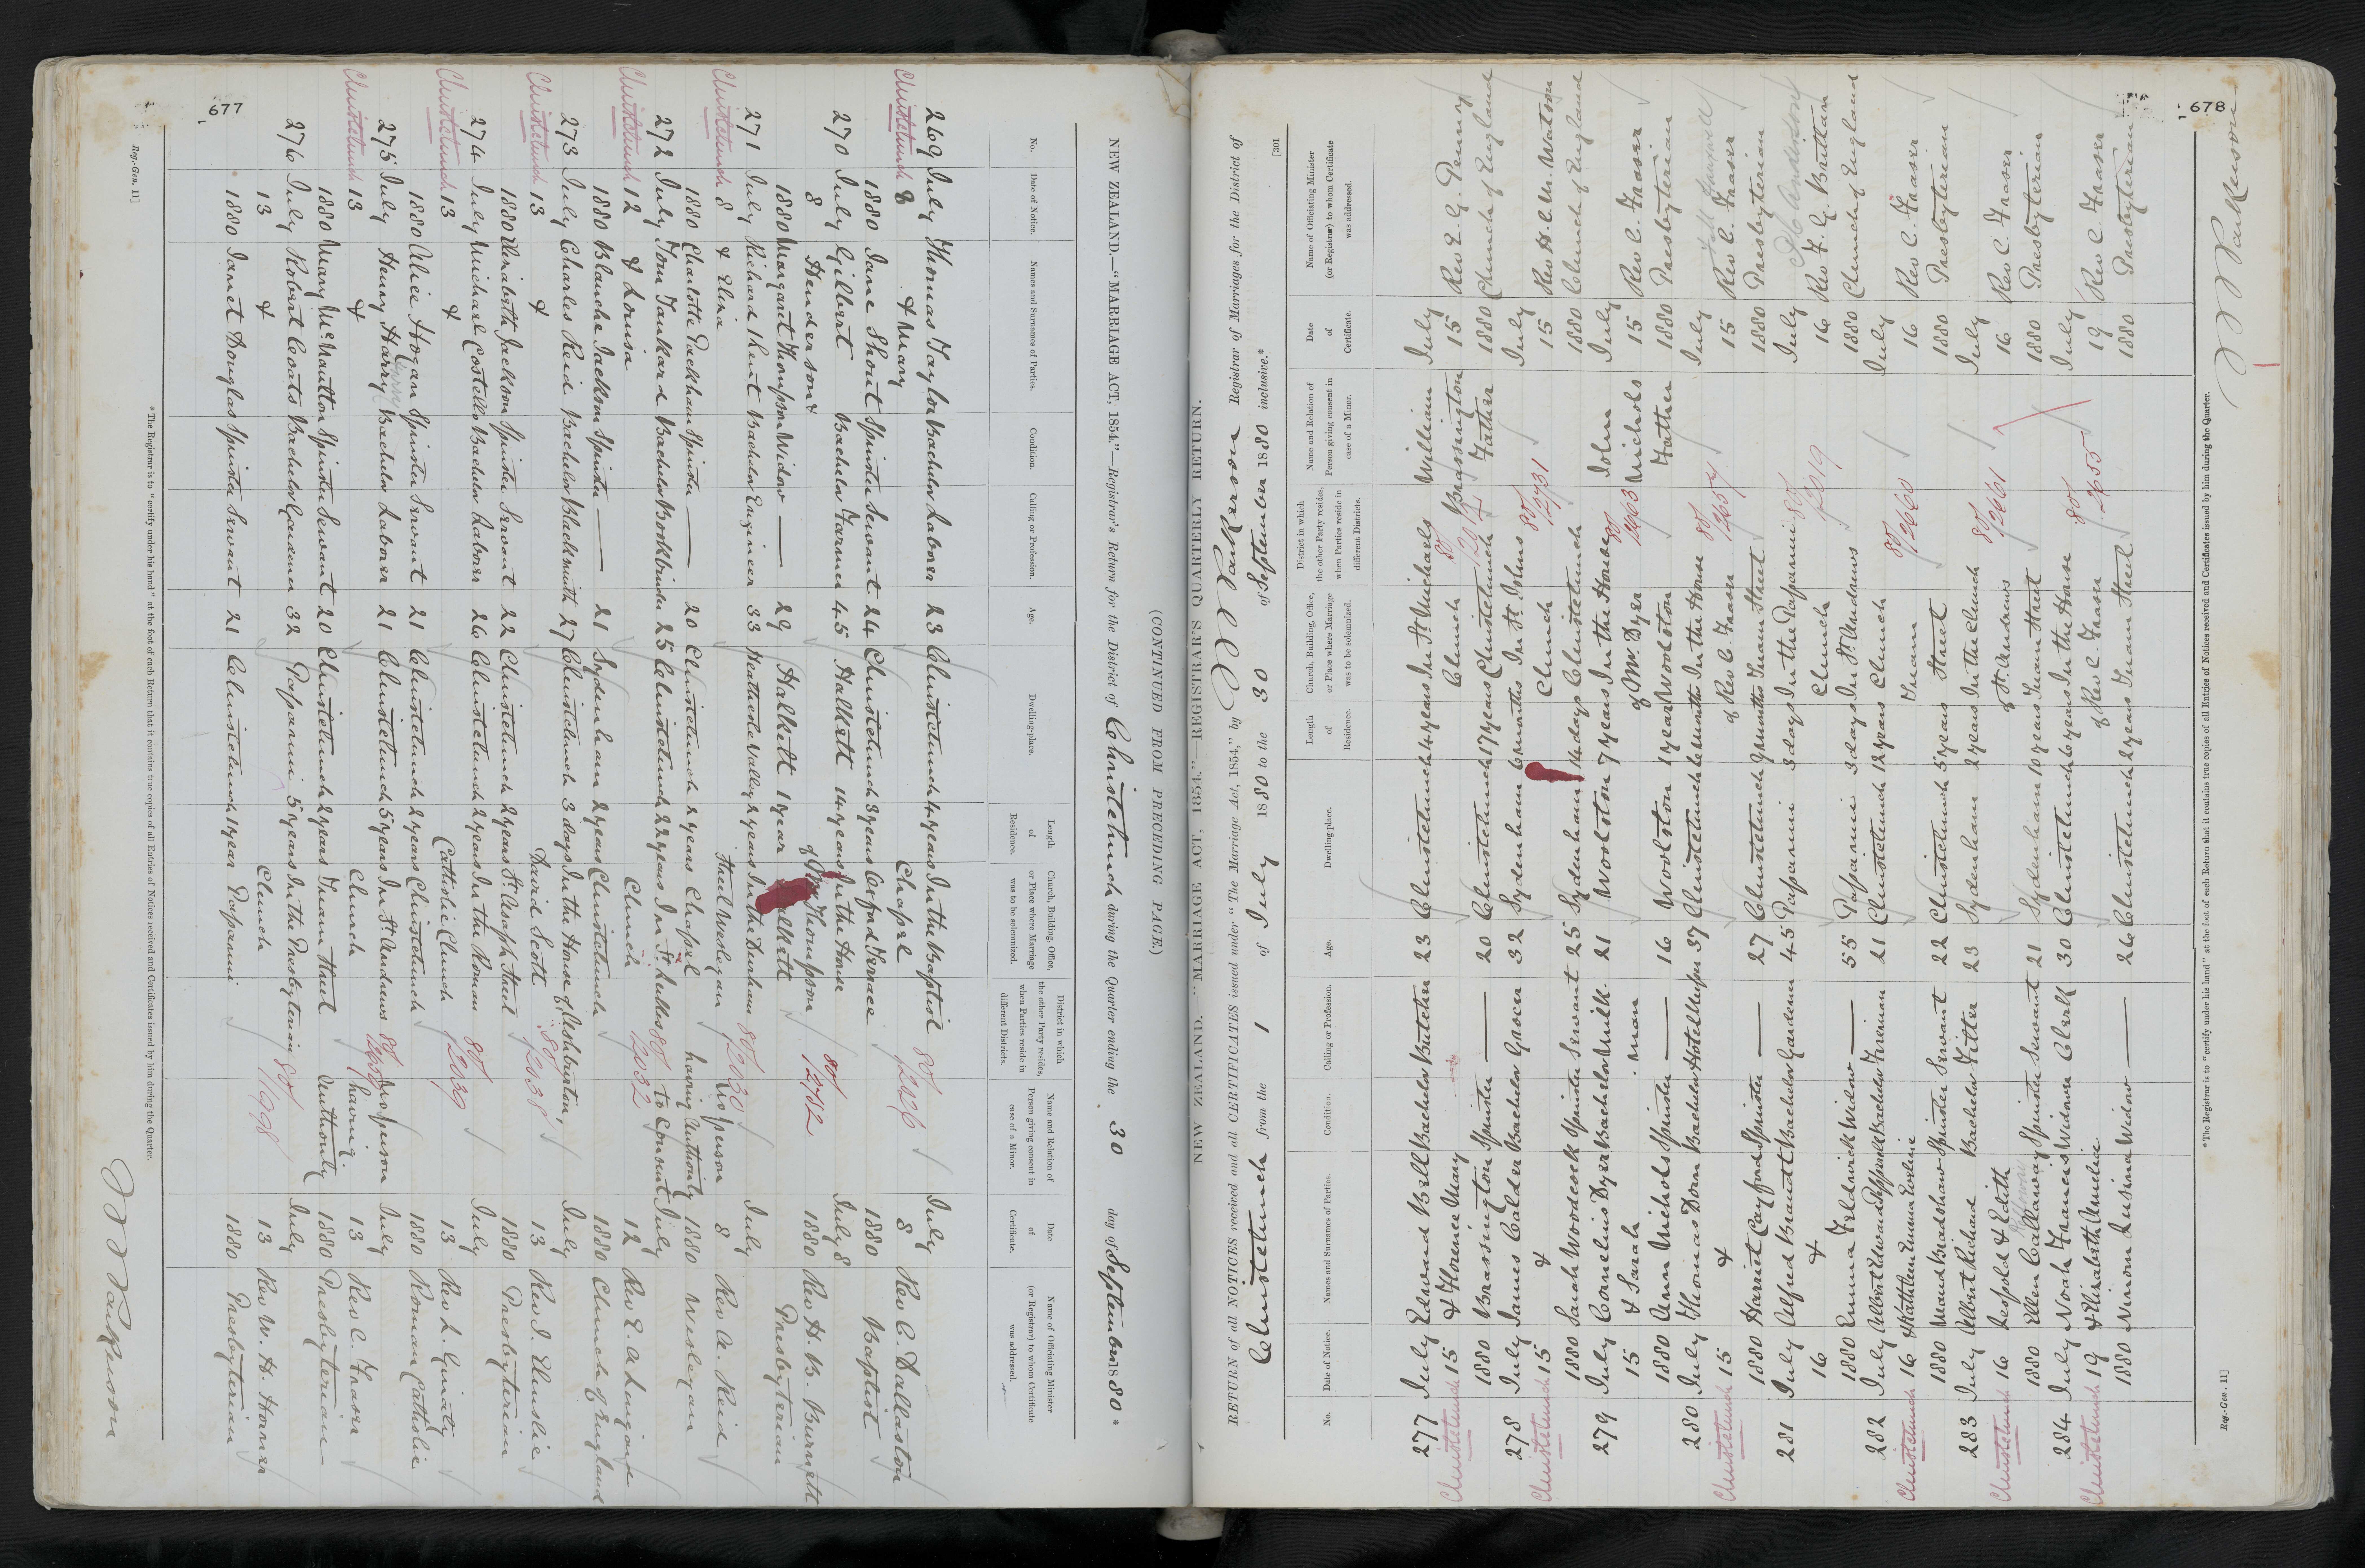 677
NEW ZEALAND.—"MARRIAGE ACT, 1854."—Registrar's Return for the District of Christchurch during the Quarter ending the 30 day of September 1880 *
No. Date of Notice. Names and Surnames of Parties. Condition. Calling or Profession. Age. Dwelling-place. Length of Residence. Church, Building, Office, or Place where Marriage was to be solemnized. District in which the other Party resides, when Parties reside in different Districts. Name and Relation of Person giving consent in case of a Minor. Date of Certificate. Name of Officiating Minister (or Registrar) to whom Certificate was addressed.
269 July Thomas Taylor Bachelor Laborer 23 Christchurch 4 years In the Baptist 80/ July
Christchurch 8 & Mary Chapel 2026 8 Rev C. Dallaston
1880 Jane Shout Spinster Servant 24 Christchurch 3 years Oxford Terrace 1880 Baptist
270 July Gilbert Bachelor Farmer 45 Halkett 14 years In the House 80/ July 8
8 Henderson & of Thompson 2702 1880 Rev H. B. Burnett
1880 Margaret Thompson Widow — 29 Halkett 1 year Halkett Presbyterian
271 July Richard Kent Bachelor Engineer 33 Heathcote Valley 2 years In the Durham 80/ No person July
Christchurch 8 & Eliza Street Wesleyan 2030 having authority 8 Rev A. Reid
1880 Charlotte Packham Spinster — 20 Christchurch 2 years Chapel to Consent 1880 Wesleyan
272 July Tom Tankard Bachelor Bookbinder 25 Christchurch 22 years In St. Lukes 80/ July
Christchurch 12 & Louisa Church 2032 12 Rev E. A. Lingard
1880 Blanche Jackson Spinster — 21 Sydenham 2 years Christchurch 1880 Church of England
273 July Charles Reid Bachelor Blacksmith 27 Christchurch 3 days In the House of Ashburton, July
Christchurch 13 & David Scott 80/ 2038 13 Rev J. Elmslie
1880 Elizabeth Jackson Spinster Servant 22 Christchurch 2 years St. Asaph Street 1880 Presbyterian
274 July Michael Costello Bachelor Laborer 26 Christchurch 2 years In the Roman 80/ July
Christchurch 13 & Catholic Church 2039 13 Rev L. Ginaty
1880 Alice Hogan Spinster Servant 21 Christchurch 2 years Christchurch 1880 Roman Catholic
275 July Henry Harry Bachelor Laborer 21 Christchurch 5 years In St. Andrews 80/ No person July
Christchurch 13 & Church having 13 Rev C. Fraser
1880 Mary McNaulton Spinster Servant 20 Christchurch 2 years Tuam Street authority 1880 Presbyterian
276 July Robert Coats Bachelor Gardener 32 Papanui 5 years In the Presbyterian 80/ July
13 & Church 1998 13 Rev W. H. Horner
1880 Janet Douglas Spinster Servant 21 Christchurch 1 year Papanui 1880 Presbyterian
* The Registrar is to "certify under his hand" at the foot of each Return that it contains true copies of all Entries of Notices received and Certificates issued by him during the Quarter.
Reg.-Gen. 11]
Parkerson
(CONTINUED FROM PRECEDING PAGE.)
678
[301
NEW ZEALAND.—"MARRIAGE ACT, 1854."—REGISTRAR'S QUARTERLY RETURN.
RETURN of all NOTICES received and all CERTIFICATES issued under "The Marriage Act, 1854," by Parkerson Registrar of Marriages for the District of
Christchurch from the 1 of July 1880 to the 30 of September 1880 inclusive.*
No. Date of Notice. Names and Surnames of Parties. Condition. Calling or Profession. Age. Dwelling-place. Length of Residence. Church, Building, Office, or Place where Marriage was to be solemnized. District in which the other Party resides, when Parties reside in different Districts. Name and Relation of Person giving consent in case of a Minor. Date of Certificate. Name of Officiating Minister (or Registrar) to whom Certificate was addressed.
277 July Edward Bell Bachelor Butcher 23 Christchurch 4 years In St. Michaels William July
Christchurch 15 & Florence Mary Church 80/ Brassington 15 Rev E. G. Penny
1880 Brassington Spinster — 20 Christchurch 17 years Christchurch Father 1880 Church of England
278 July James Calder Bachelor Grocer 32 Sydenham 6 months In St. Johns 80/ July
Christchurch 15 & Church 2731 15 Rev H. C. M. Watson
1880 Sarah Woodcock Spinster Servant 25 Sydenham 14 days Christchurch 1880 Church of England
279 July Cornelius Dyer Bachelor Milk- 21 Woolston 7 years In the House 80/ John July
15 & Sarah man of Mr. Dyer 2663 Nichols 15 Rev C. Fraser
1880 Ann Nichols Spinster — 16 Woolston 1 year Woolston Father 1880 Presbyterian
280 July Thomas Dorn Bachelor Hotelkeeper 37 Christchurch 6 months In the House 80/ July
Christchurch 15 & of Rev C. Fraser 2657 15 Rev C. Fraser
1880 Harriet Cayford Spinster — 27 Christchurch 9 months Tuam Street 1880 Presbyterian
281 July Alfred Brandt Bachelor Gardener 45 Papanui 3 days In the Papanui 80/ July
16 & Church 2019 16 Rev F. G. Brittan
1880 Emma Feldwick Widow — 55 Papanui 3 days In St. Andrews 1880 Church of England
282 July Albert Edward Pepperell Bachelor Fireman 21 Christchurch 12 years Church 80/ July
Christchurch 16 & Kathleen Emma Eveline Tuam 2660 16 Rev C. Fraser
1880 Maud Bradshaw Spinster Servant 22 Christchurch 5 years Street 1880 Presbyterian
283 July Albert Richard Bachelor Fitter 23 Sydenham 2 years In the Church 80/ July
Christchurch 16 Leopold & Edith of St. Andrews 2661 16 Rev C. Fraser
1880 Ellen Callaway Spinster Servant 21 Sydenham 10 years Tuam Street 1880 Presbyterian
284 July Noah Francis Widower Clerk 30 Christchurch 6 years In the House 80/ July
Christchurch 19 & Elizabeth Amelia of Rev C. Fraser 2655 19 Rev C. Fraser
1880 Ninom Lusina Widow — 26 Christchurch 2 years Tuam Street 1880 Presbyterian
* The Registrar is to "certify under his hand" at the foot of each Return that it contains true copies of all Entries of Notices received and Certificates issued by him during the Quarter.
Reg.-Gen. 11]
Parkerson